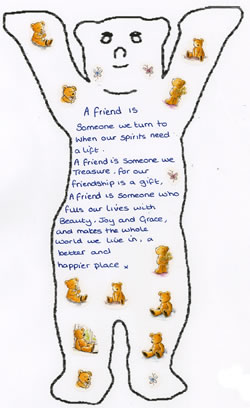 A friend is
Someone we turn to
when our spirits need
a lift.
A friend is someone we
Treasure, for our
friendship is a gift,
A friend is someone who
fills our lives with
Beauty, Joy and Grace,
and makes the whole
world we live in, a
better and
happier place